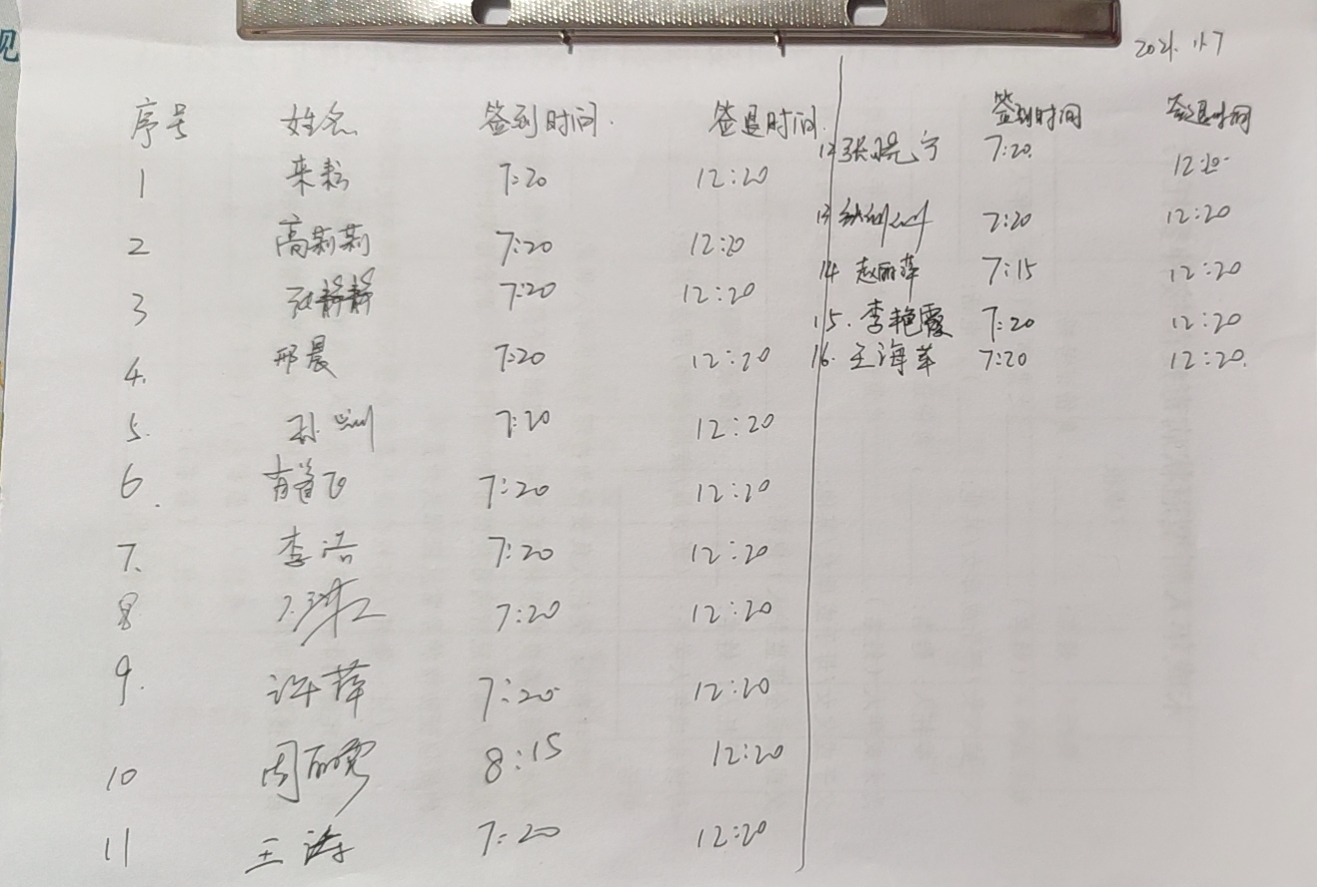 2021.11.7
序号 姓名 签到时间 签退时间
1 来彩 7:20 12:20
2 高莉莉 7:20 12:20
3 张静静 7:20 12:20
4. 邢晨 7:20 12:20
5. 孙 7:20 12:20
6. 7:20 12:20
7. 李浩 7:20 12:20
8 7:20 12:20
9. 许萍 7:20 12:20
10 周丽霞 8:15 12:20
11 王涛 7:20 12:20
签到时间 签退时间
12 张晓宁 7:20 12:20
13 7:20 12:20
14 赵丽萍 7:15 12:20
15. 李艳霞 7:20 12:20
16. 王海苹 7:20 12:20